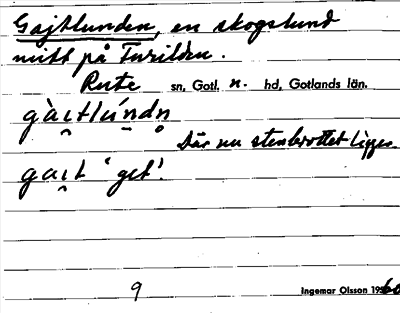 Gajtlunden, en skogslund
mitt på Furilden.
Rute sn, Gotl. n. hd, Gotlands län.
gàı̯tlúndn̥
Där nu stenbrottet ligger.
gaı̯t 'get'.
9
Ingemar Olsson 1960